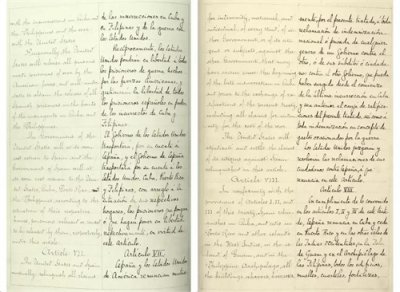 with the insurrections in Cuba and
the Philippines and the war
with the United States.
Reciprocally, the United
States will release all persons
made prisoners of war by the
American forces, and will under-
take to obtain the release of all
Spanish prisoners in the hands
of the insurgents in Cuba and
the Philippines.
The Government of the
United States will at its own
cost return to Spain and the
Government of Spain will at
its own cost return to the United
States, Cuba, Porto Rico, and
the Philippines, according to the
situation of their respective
homes, prisoners released or caused
to be released by them, respectively,
under this article.
Article VII.
The United States and Spain
mutually relinquish all claims
de las insurrecciones en Cuba y
en Filipinas y de la guerra con
los Estados Unidos.
Recíprocamente, los Estados
Unidos pondrán en libertad a todos
los prisioneros de guerra hechos
por las fuerzas americanas, y
gestionarán la libertad de todos
los prisioneros españoles en poder
de los insurrectos de Cuba y
Filipinas.
El Gobierno de los Estados Unidos
transportará, por su cuenta a
España, y el Gobierno de España
transportará por su cuenta a los
Estados Unidos, Cuba, Puerto Rico
y Filipinas, con arreglo a la
situación de sus respectivos
hogares, los prisioneros que pongan
o que hagan poner en libertad
respectivamente, en virtud de
este artículo.
Artículo VII.
España y los Estados Unidos
de América renuncian mutua-
for indemnity, national and
individual, of every kind, of
either Government, or of its citi-
zens or subjects, against the
other Government, that may
have arisen since the beginning
of the late insurrection in Cuba
and prior to the exchange of ra-
tifications of the present treaty,
including all claims for indem-
nity for the cost of the war.
The United States will
adjudicate and settle the claims
of its citizens against Spain
relinquished in this article.
Article VIII.
In conformity with the
provisions of Articles I, II, and
III of this treaty, Spain relin-
quishes in Cuba, and cedes in
Porto Rico and other islands
in the West Indies, in the is-
land of Guam, and in the
Philippine Archipelago, all
the buildings, wharves, barracks,
mente, por el presente tratado, a toda
reclamación de indemnización
nacional o privada, de cualquier
género de un Gobierno contra el
otro, o de sus súbditos o ciudada-
nos contra el otro Gobierno, que pueda
haber surgido desde el comienzo
de la última insurrección en Cuba
y sea anterior al canje de ratifica-
ciones del presente tratado, así como a
toda indemnización en concepto de
gastos ocasionados por la guerra.
Los Estados Unidos juzgarán y
resolverán las reclamaciones de sus
ciudadanos contra España, a que
renuncia en este artículo.
Artículo VIII.
En cumplimiento de lo convenido
en los artículos I, II y III de este trata-
do, España renuncia en Cuba y cede
en Puerto Rico y en las otras islas de
las Indias Occidentales, en la Isla
de Guam y en el Archipiélago de
las Filipinas, todos los edificios,
muelles, cuarteles, fortalezas,